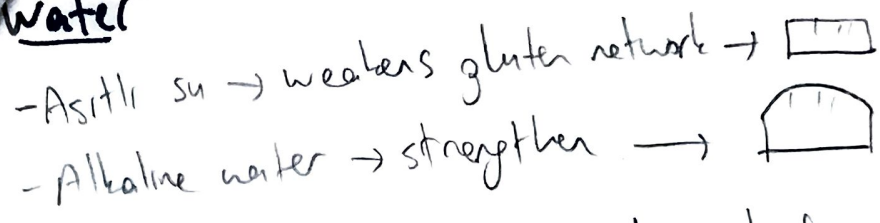 Water
-Asitli su → weakens gluten network →
-Alkaline water → strengthen →